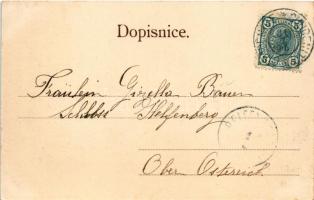 Dopisnice.
5 5
Fräulein Gizella Bauer
Schloss Helfenberg
Ober Österreich